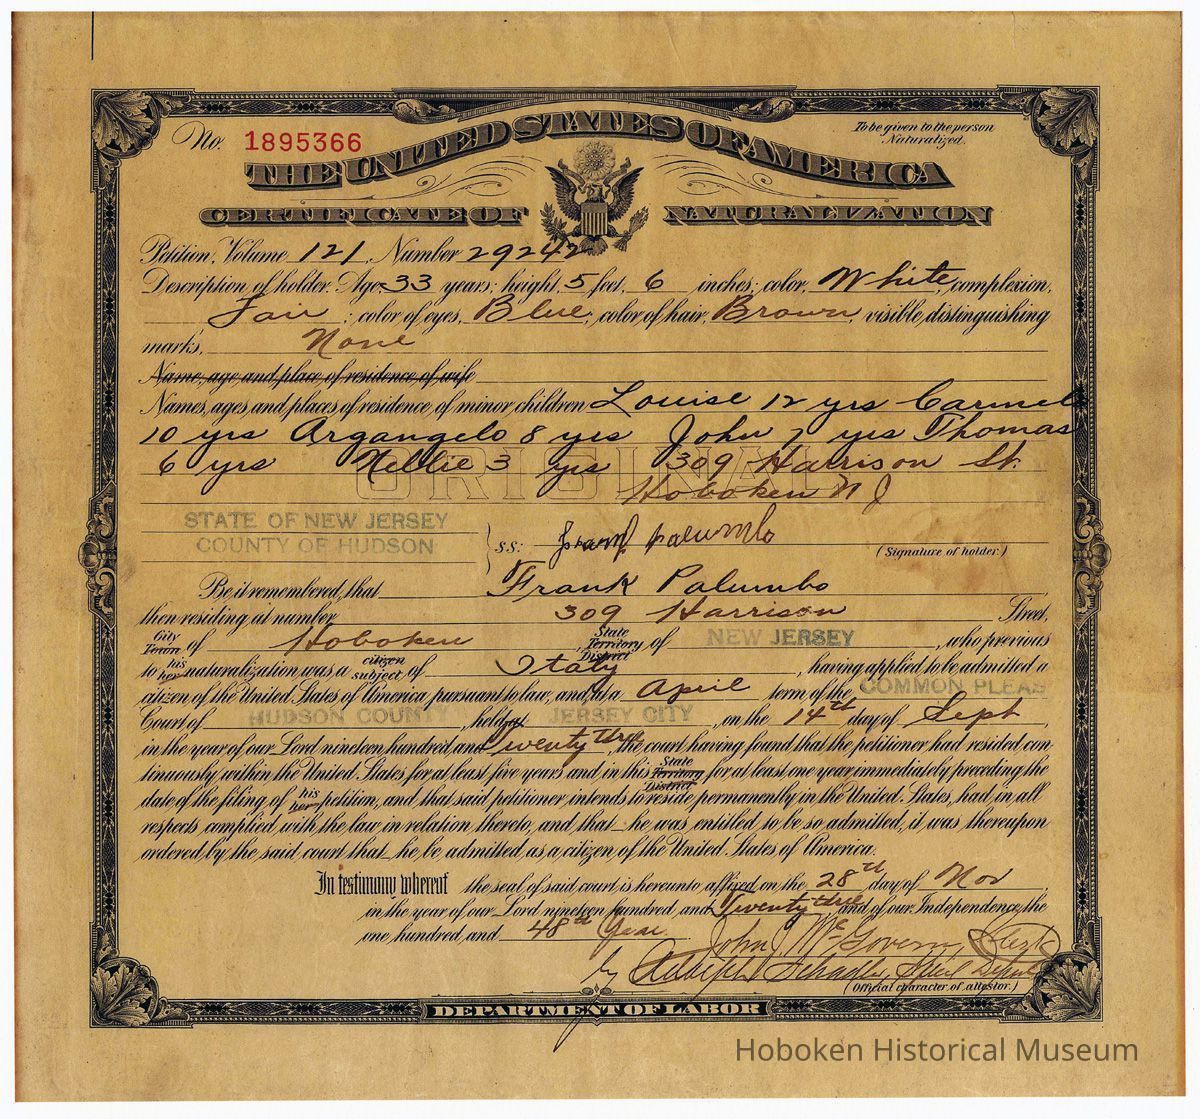 No. 1895366
To be given to the person
Naturalized.
THE UNITED STATES OF AMERICA
CERTIFICATE OF NATURALIZATION
Petition, Volume 121, Number 29242
Description of holder: Age, 33 years; height, 5 feet, 6 inches; color, White; complexion,
Fair; color of eyes, Blue; color of hair, Brown; visible distinguishing
marks, None
Name, age and place of residence of wife
Names, ages and places of residence of minor children Louise 12 yrs Carmel
10 yrs Argangelo 8 yrs John 7 yrs Thomas
6 yrs Nellie 3 yrs 309 Harrison St.
ORIGINAL
Hoboken N J
STATE OF NEW JERSEY
COUNTY OF HUDSON
ss: Frank Palumbo
(Signature of holder.)
Be it remembered, that Frank Palumbo
then residing at number 309 Harrison Street,
City Town of Hoboken, State Territory District of NEW JERSEY, who previous
to his her naturalization was a citizen subject of Italy, having applied to be admitted a
citizen of the United States of America pursuant to law, and, at a April term of the COMMON PLEAS
Court of HUDSON COUNTY, held at JERSEY CITY, on the 14th day of Sept,
in the year of our Lord nineteen hundred and Twenty three, the court having found that the petitioner had resided con-
tinuously within the United States for at least five years and in this State Territory District for at least one year immediately preceding the
date of the filing of his her petition, and that said petitioner intends to reside permanently in the United States, had in all
respects complied with the law in relation thereto, and that he was entitled to be so admitted, it was thereupon
ordered by the said court that he be admitted as a citizen of the United States of America.
In testimony whereof the seal of said court is hereunto affixed on the 28th day of Nov
in the year of our Lord nineteen hundred and Twenty three and of our Independence the
one hundred and 48th Year.
John J. McGovern, Clerk
by Adolph Schadle, Special Deputy
(Official character of attestor.)
DEPARTMENT OF LABOR
Hoboken Historical Museum